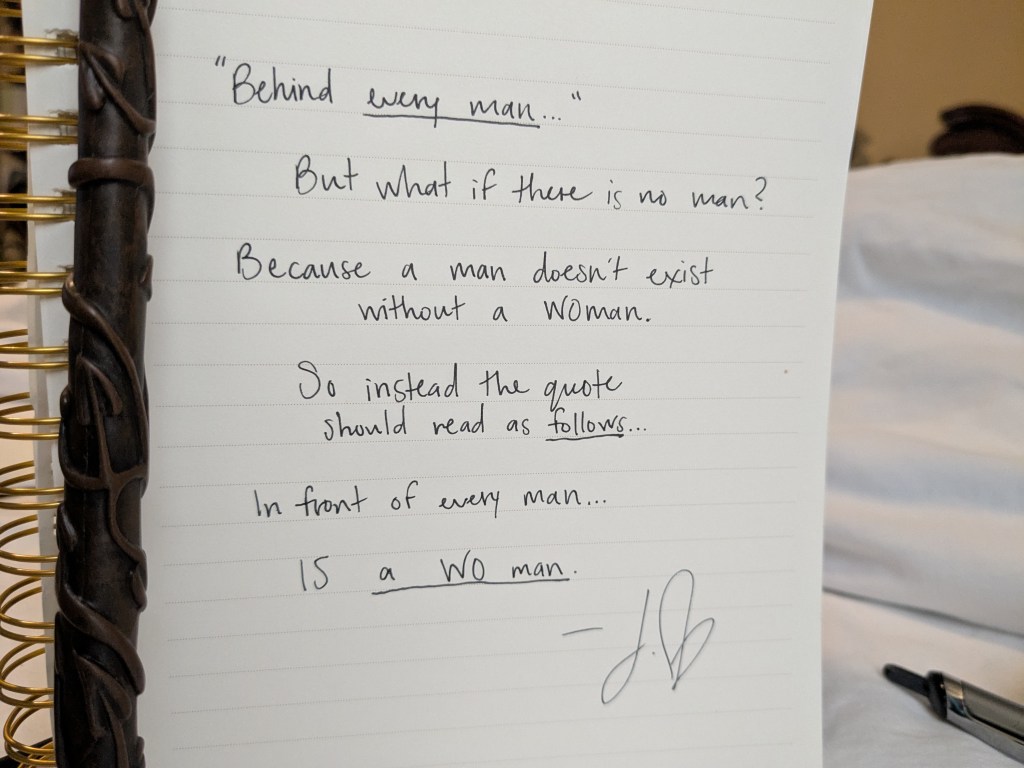 "Behind every man..."
But what if there is no man?
Because a man doesn't exist
without a WOman.
So instead the quote
should read as follows...
In front of every man...
IS a WO man.
- J.B